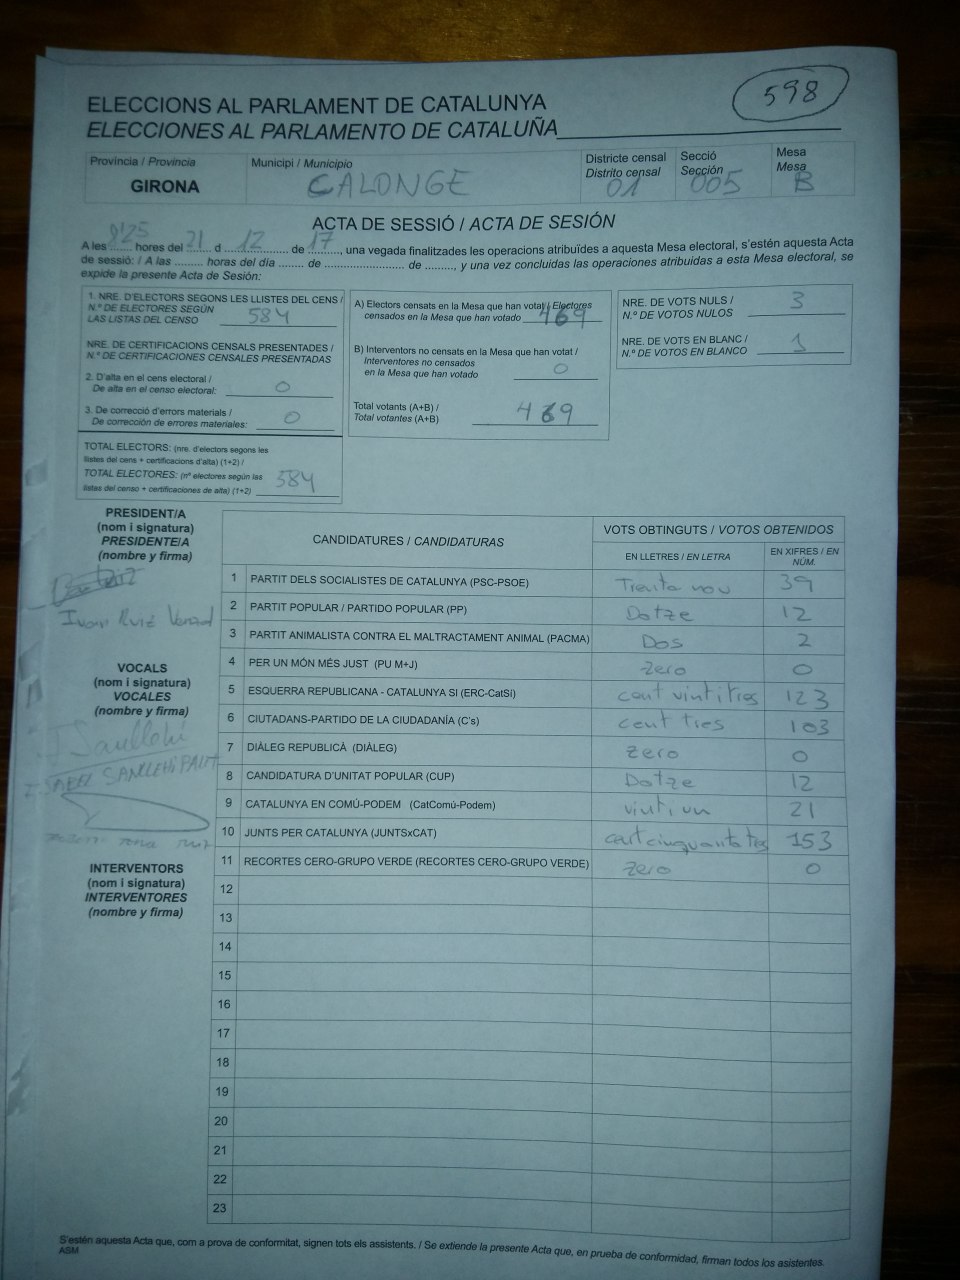 598
ELECCIONS AL PARLAMENT DE CATALUNYA
ELECCIONES AL PARLAMENTO DE CATALUÑA
Provincia / Provincia
GIRONA
Municipi / Municipio
CALONGE
Districte censal
Distrito censal
01
Secció
Sección
005
Mesa
Mesa
B
ACTA DE SESSIÓ / ACTA DE SESIÓN
A les 9'25 hores del 21 d 12 de 17, una vegada finalitzades les operacions atribuïdes a aquesta Mesa electoral, s'estén aquesta Acta
de sessió: / A las ......... horas del día ........ de ........................ de ........., y una vez concluidas las operaciones atribuidas a esta Mesa electoral, se
expide la presente Acta de Sesión:
1. NRE. D'ELECTORS SEGONS LES LLISTES DEL CENS /
N.º DE ELECTORES SEGÚN
LAS LISTAS DEL CENSO 584
NRE. DE CERTIFICACIONS CENSALS PRESENTADES /
N.º DE CERTIFICACIONES CENSALES PRESENTADAS
2. D'alta en el cens electoral /
De alta en el censo electoral: 0
3. De correcció d'errors materials /
De corrección de errores materiales: 0
TOTAL ELECTORS: (nre. d'electors segons les
llistes del cens + certificacions d'alta) (1+2) /
TOTAL ELECTORES: (nº electores según las
listas del censo + certificaciones de alta) (1+2) 584
A) Electors censats en la Mesa que han votat / Electores
censados en la Mesa que han votado 469
B) Interventors no censats en la Mesa que han votat /
Interventores no censados
en la Mesa que han votado 0
Total votants (A+B) /
Total votantes (A+B) 469
NRE. DE VOTS NULS /
N.º DE VOTOS NULOS 3
NRE. DE VOTS EN BLANC /
N.º DE VOTOS EN BLANCO 1
PRESIDENT/A
(nom i signatura)
PRESIDENTE/A
(nombre y firma)
Ivan Ruiz
VOCALS
(nom i signatura)
VOCALES
(nombre y firma)
INTERVENTORS
(nom i signatura)
INTERVENTORES
(nombre y firma)
CANDIDATURES / CANDIDATURAS
VOTS OBTINGUTS / VOTOS OBTENIDOS
EN LLETRES / EN LETRA
EN XIFRES / EN
NÚM.
1 PARTIT DELS SOCIALISTES DE CATALUNYA (PSC-PSOE) Trenta nou 39
2 PARTIT POPULAR / PARTIDO POPULAR (PP) Dotze 12
3 PARTIT ANIMALISTA CONTRA EL MALTRACTAMENT ANIMAL (PACMA) Dos 2
4 PER UN MÓN MÉS JUST (PU M+J) Zero 0
5 ESQUERRA REPUBLICANA - CATALUNYA SI (ERC-CatSí) cent vintitres 123
6 CIUTADANS-PARTIDO DE LA CIUDADANÍA (C's) cent tres 103
7 DIÀLEG REPUBLICÀ (DIÀLEG) zero 0
8 CANDIDATURA D'UNITAT POPULAR (CUP) Dotze 12
9 CATALUNYA EN COMÚ-PODEM (CatComú-Podem) vinti un 21
10 JUNTS PER CATALUNYA (JUNTSxCAT) cent cinquanta tres 153
11 RECORTES CERO-GRUPO VERDE (RECORTES CERO-GRUPO VERDE) zero 0
12
13
14
15
16
17
18
19
20
21
22
23
S'estén aquesta Acta que, com a prova de conformitat, signen tots els assistents. / Se extiende la presente Acta que, en prueba de conformidad, firman todos los asistentes.
ASM